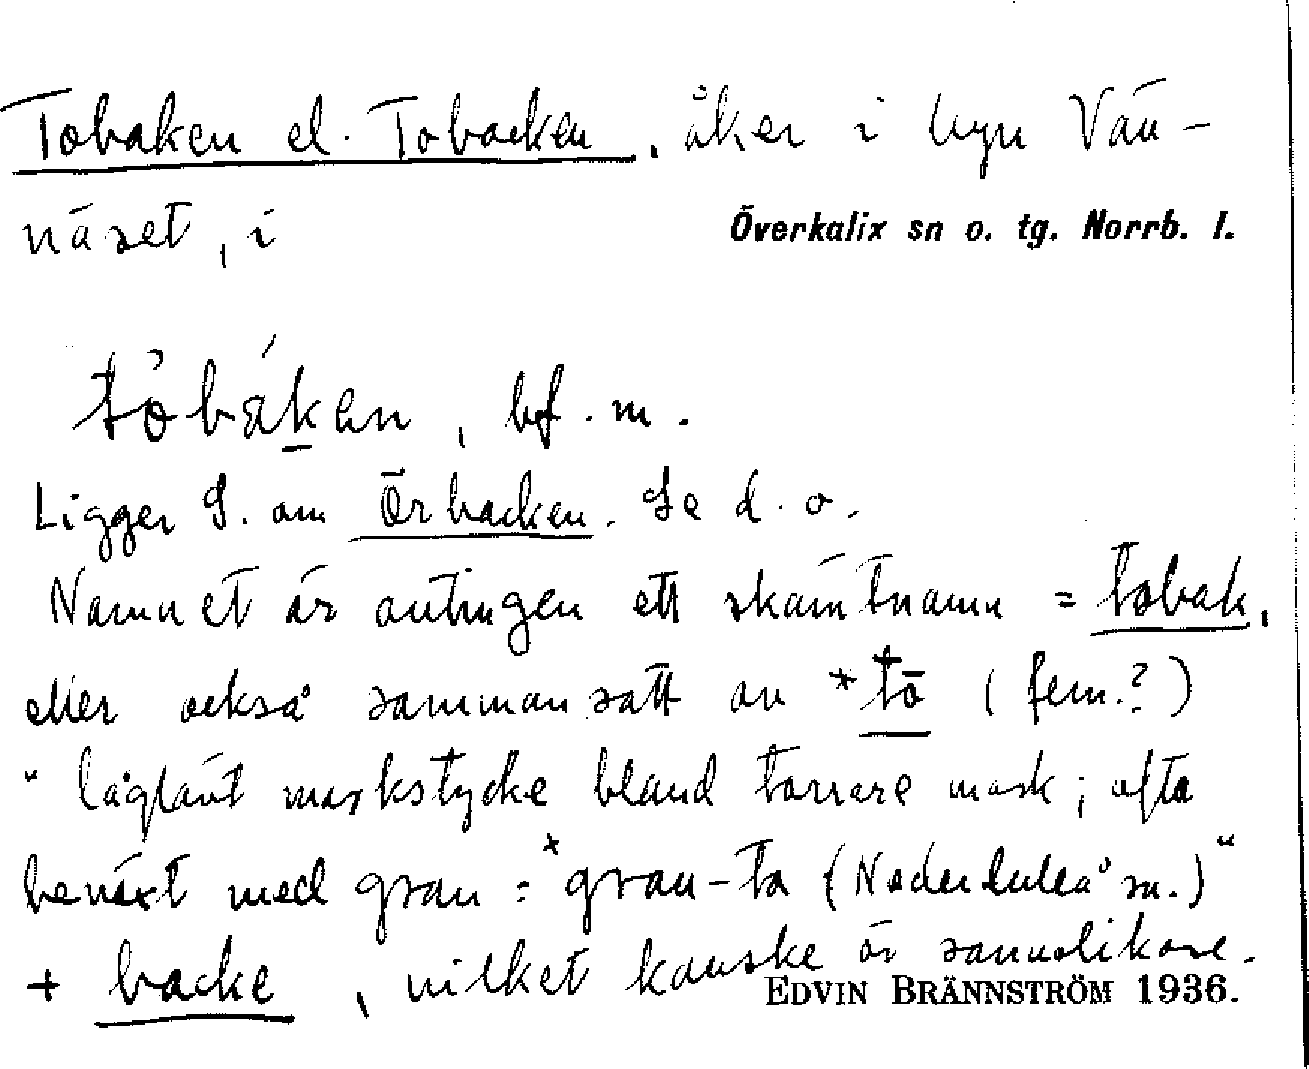 Tobaken el. Tobacken, åker i byn Vän-
näset, i Överkalix sn o. tg. Norrb. l.
tåbäken, bf. m.
Ligger S. om Örbacken. Se d. o.
Namnet är antingen ett skämtnamn = tobak,
eller också sammansatt av *tō (fem.?)
"låglänt markstycke bland torrare mark; ofta
beväxt med gran = *gran-to (Nederluleå sn.)"
+ backe, vilket kanske är sannolikare.
EDVIN BRÄNNSTRÖM 1936.